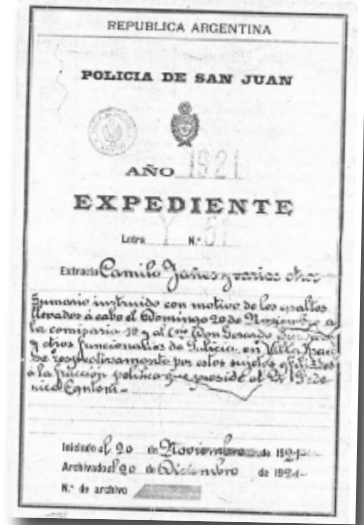 REPUBLICA ARGENTINA
POLICIA DE SAN JUAN
AÑO 1921
EXPEDIENTE
Letra Y N.º 51
Extracto Camilo Yañes y varios otros
Sumario instruido con motivo de los asaltos
llevados á cabo el Domingo 20 de Noviembre a
la comisaria 10 y al
y otros funcionarios de Policia, en Villa
respectivamente por estos sujetos afiliados
á la fracción politica que preside el Dr
Cantoni.
Iniciado el 20 de Noviembre de 1921
Archivado el 20 de Diciembre de 1921
N.º de archivo